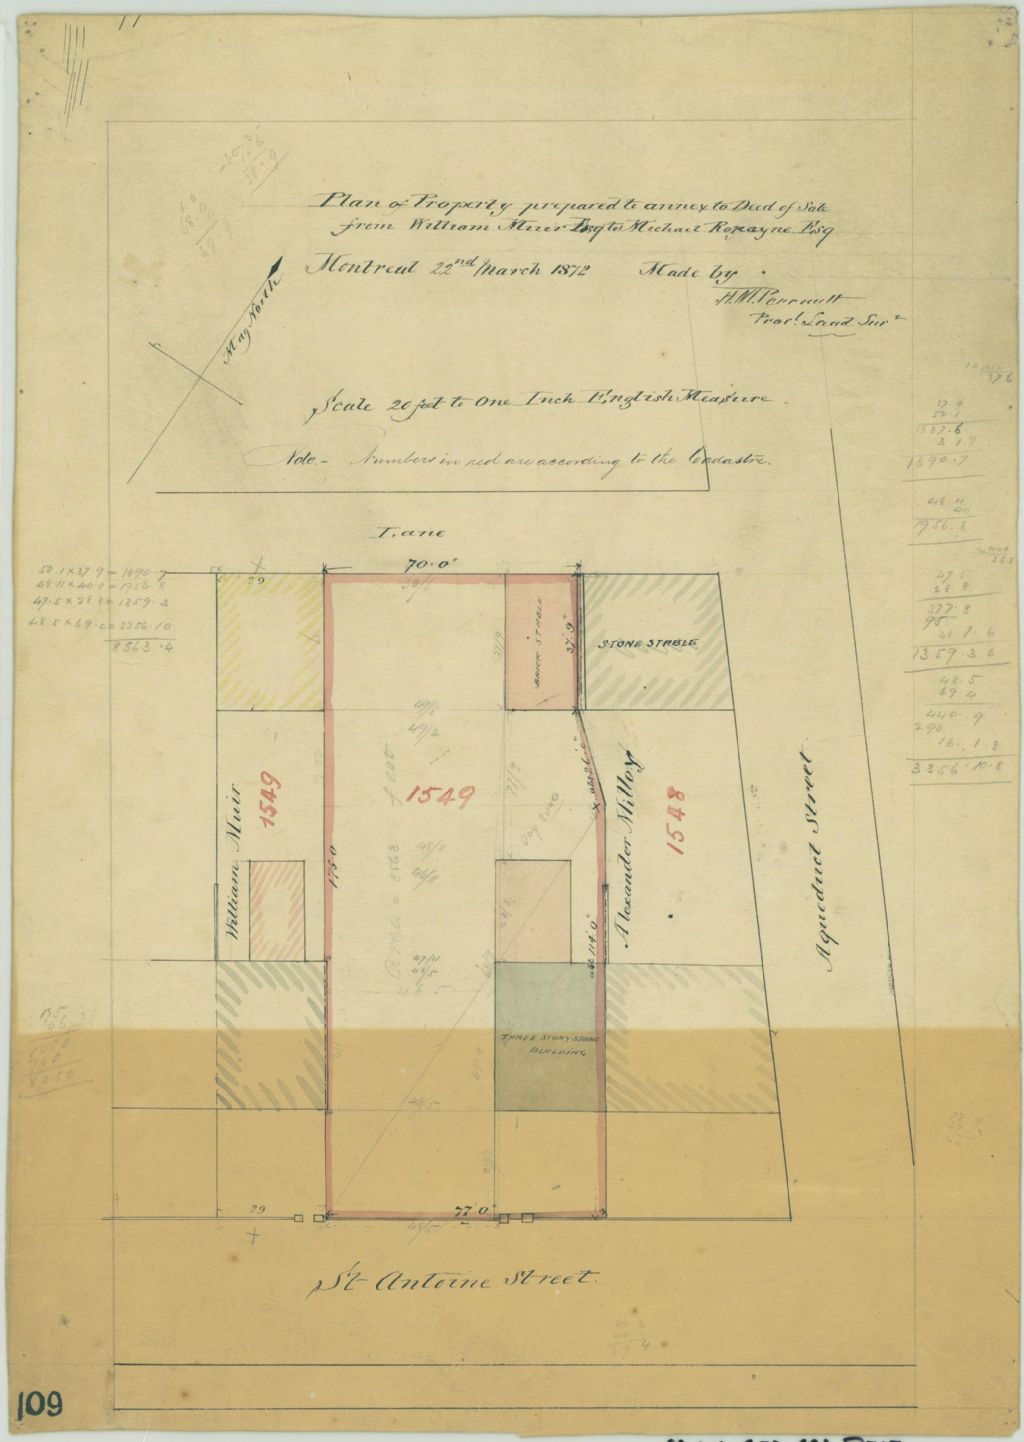 Plan of Property prepared to annex to Deed of Sale
from William Muir Esq to Michael Ronayne Esq
Montreal 22nd March 1872 Made by
H.M. Perrault
Provl. Land Surr
Mag North
Scale 20 feet to One Inch English Measure
Note - Numbers in red are according to the Cadastre.
Lane
70.0"
29
50.1 x 37.9 = 1890.7
48.11 x 40.0 = 1956.8
47.5 x 28.8 = 1359.3
48.5 x 69.4 = 3356.10
8563.4
BRICK STABLE
37.9"
STONE STABLE
49/2
abt 26.0"
William Muir
1549
1549
175.0"
Alexander Milloy
1548
Aqueduct Street
Area = 8563 feet
46/11
47/11
48/5
48.5
abt 114.0"
THREE STORY STONE
BUILDING
48/5
29
77.0"
48/5
St Antoine Street.
37.9
50.1
1887.6
3 1 9
1890.7
48.11
40
1956.8
47.5
28.8
377.8
95
31 7 6
1359.3 6
48.5
69.4
440.9
290
16.1.8
3356.10.8
109